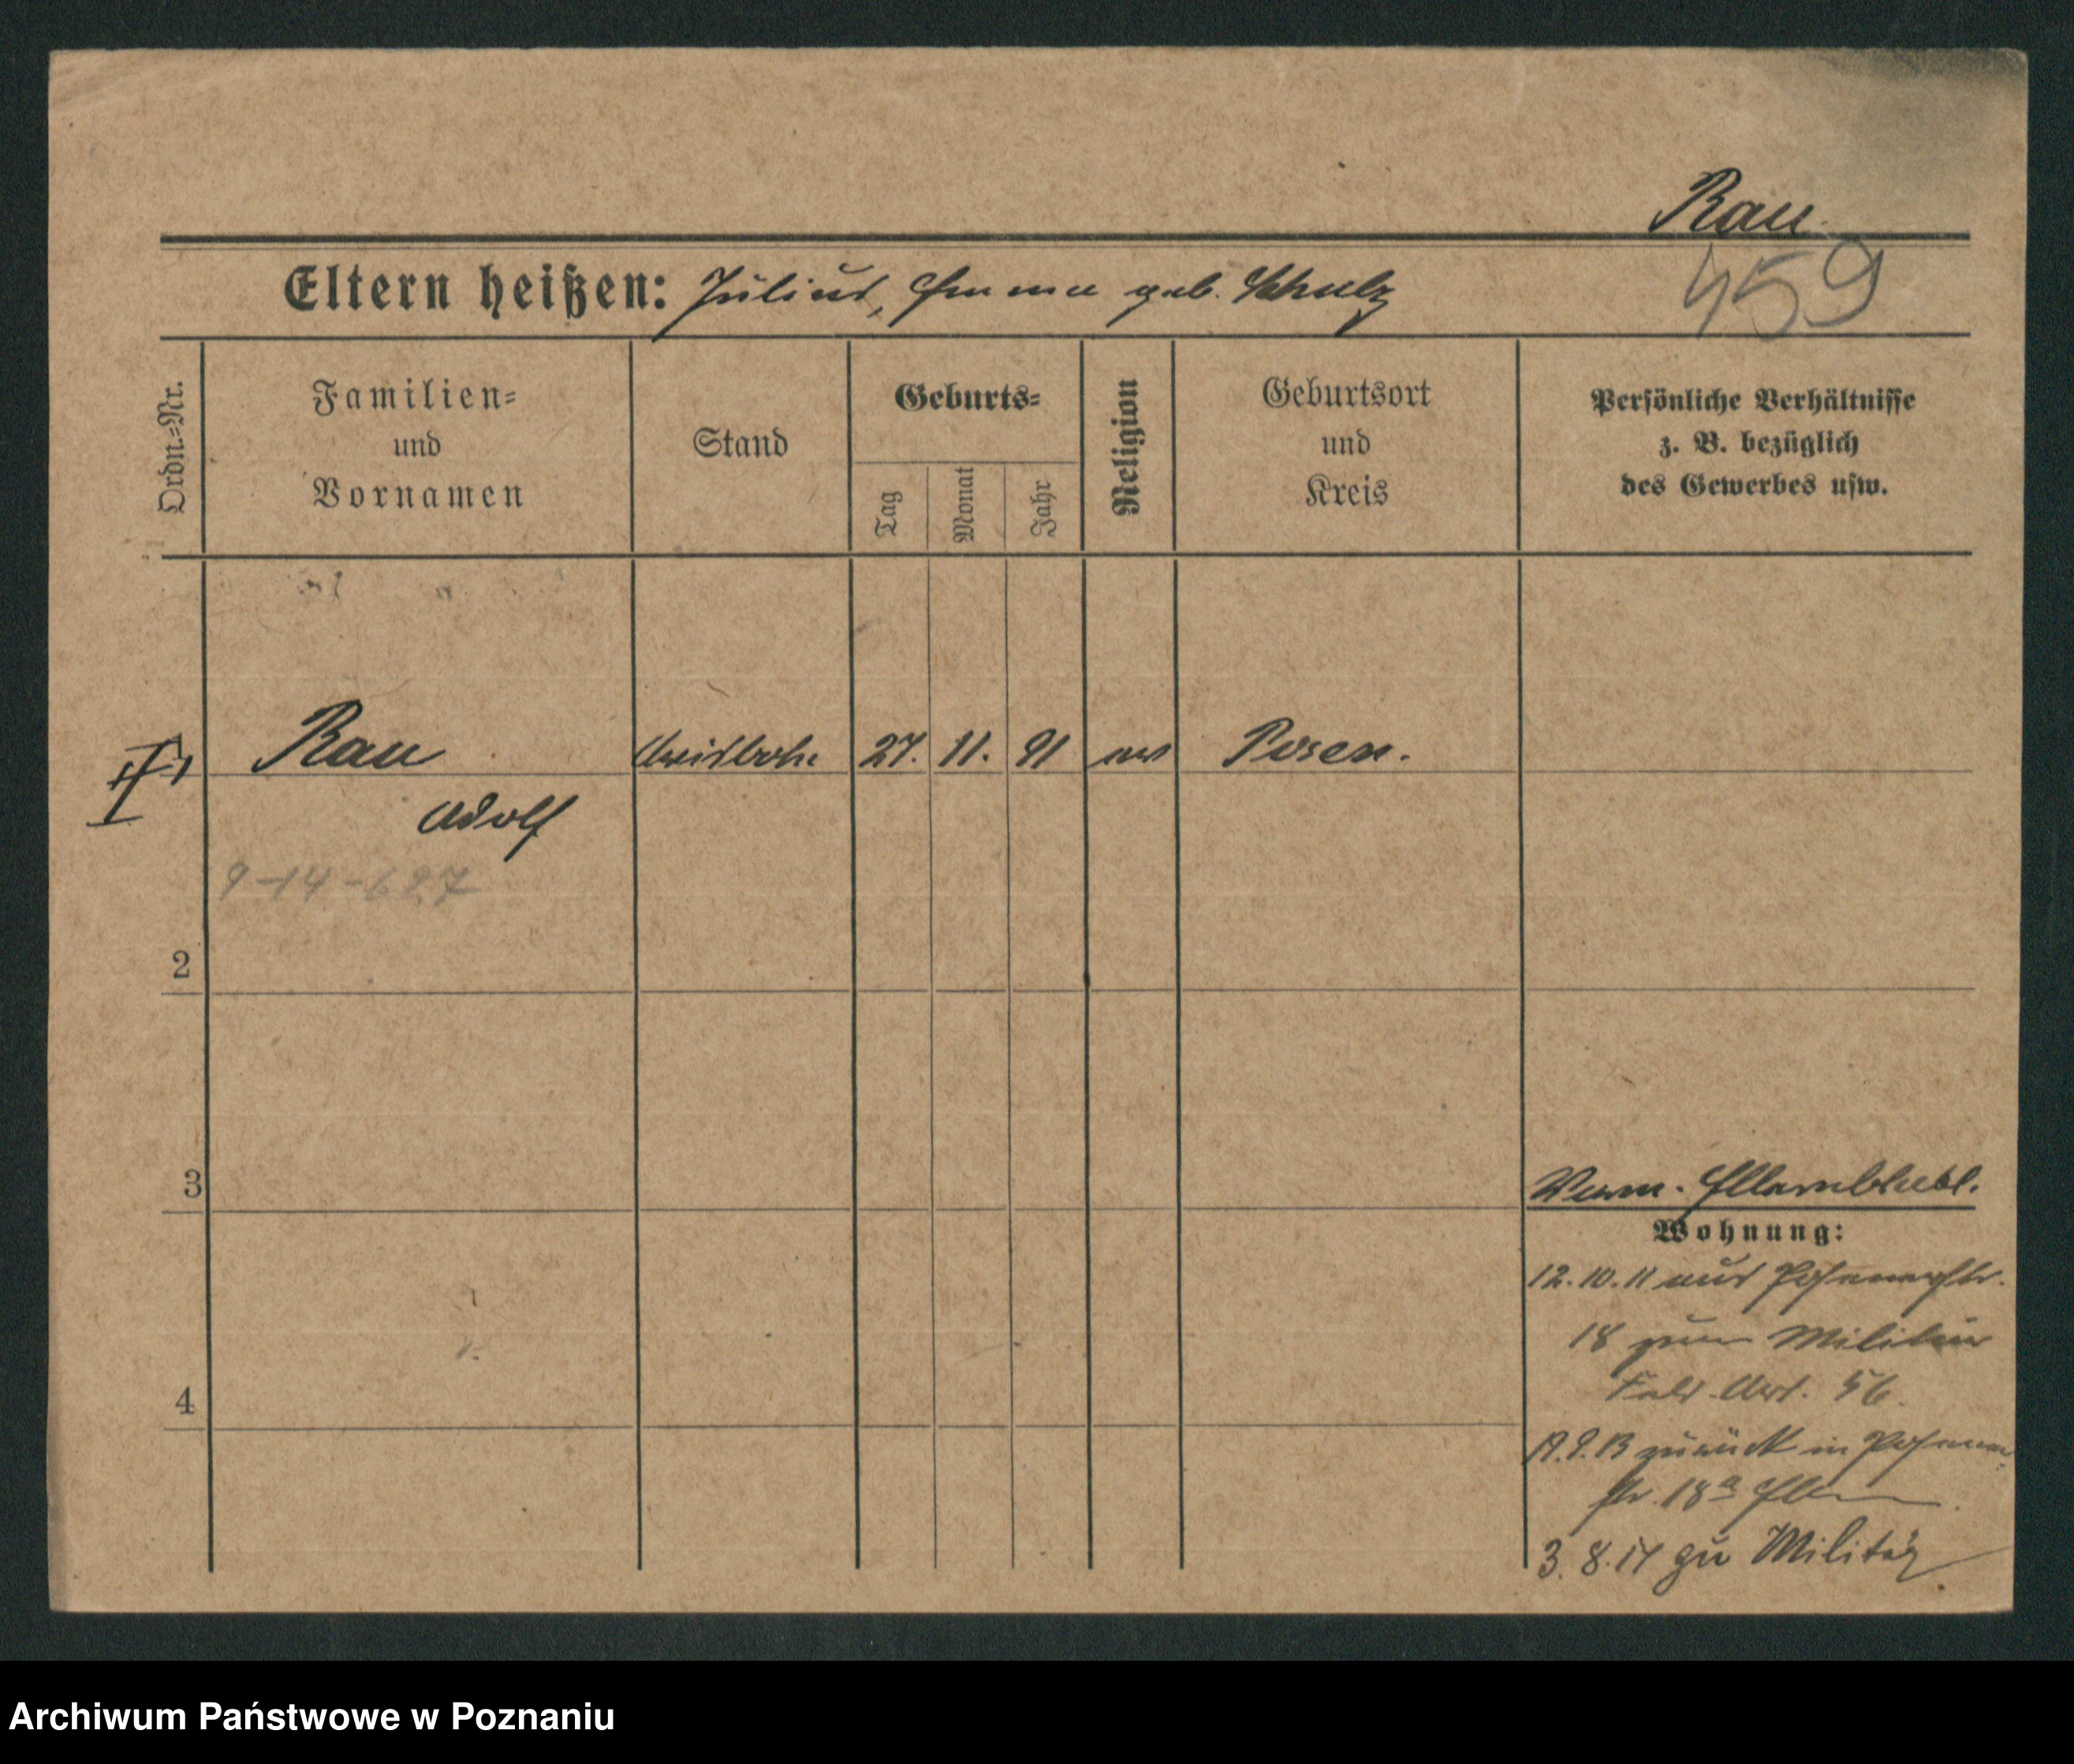 Rau.
459
Eltern heißen: Julius, Emma geb. Schulz
Ordn.=Nr.
Familien=
und
Vornamen
Stand
Geburts=
Tag
Monat
Jahr
Religion
Geburtsort
und
Kreis
Persönliche Verhältnisse
z. B. bezüglich
des Gewerbes usw.
1 Rau 27. 11. 91 Posen.
Adolf
9-14-627
2
3
4
Wohnung:
12.10.11 aus Posenerstr.
18 zum Militär
Feld. Art. 56.
zurück in Posener
str. 18a
3. 8. 14 zu Militär
Archiwum Państwowe w Poznaniu